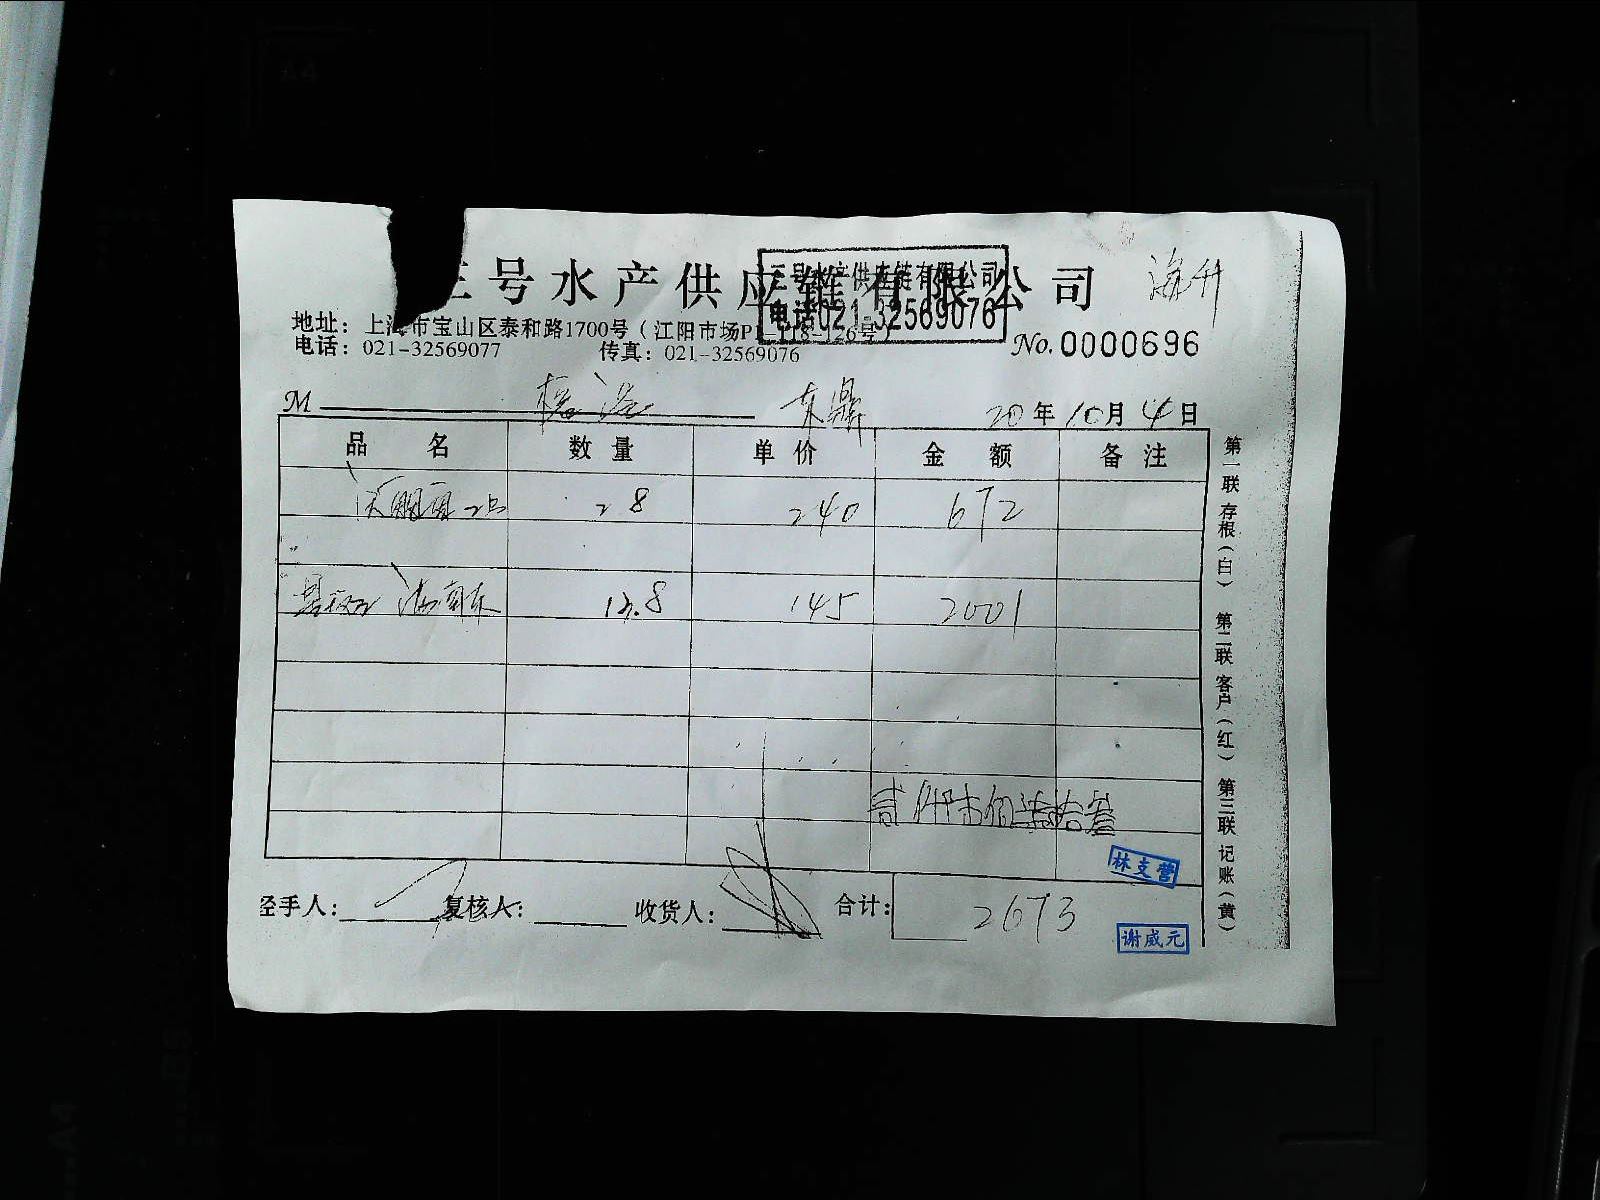 三号水产供应链有限公司
三号水产供应链有限公司
电话021-32569076
海升
地址：上海市宝山区泰和路1700号（江阳市场P1-118-126号）
电话：021-32569077 传真：021-32569076
No.0000696
M 东鼎 20年10月4日
品名 数量 单价 金额 备注
2.8 240 672
海南东 13.8 145 2001
林支营
经手人： 复核人： 收货人： 合计： 2673
谢威元
第一联 存根（白） 第二联 客户（红） 第三联 记账（黄）